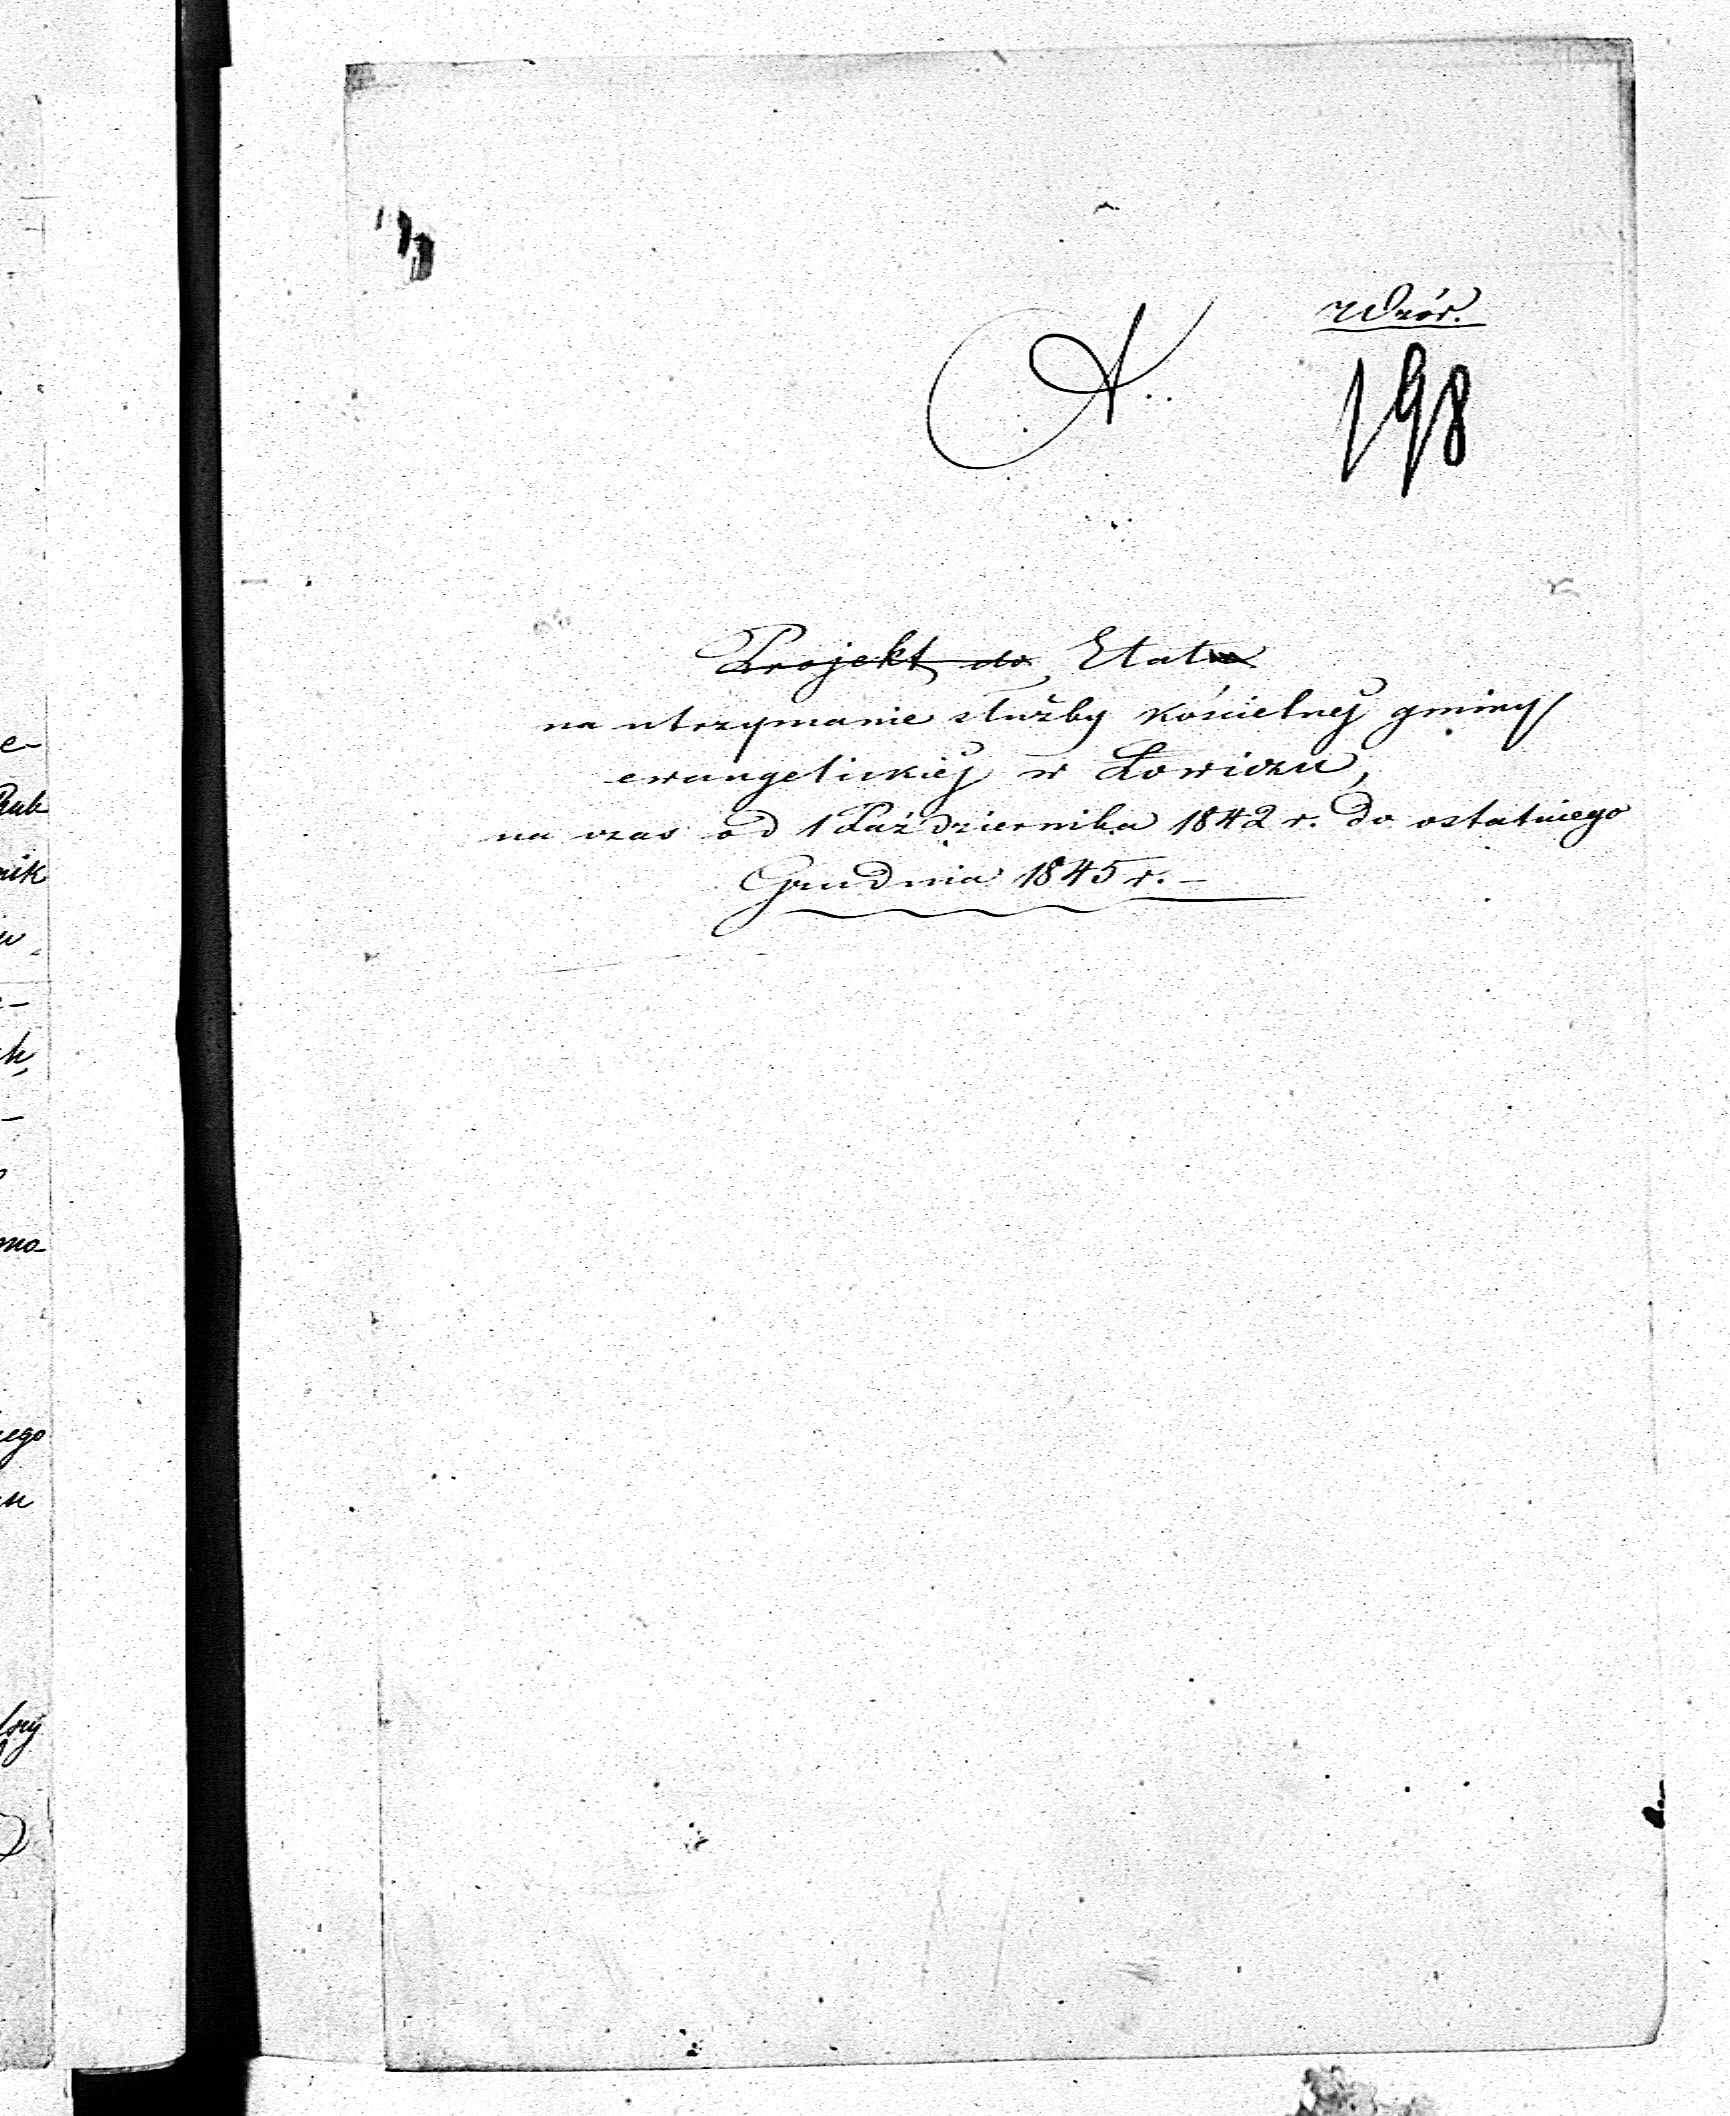 Wzór.
A.
198
Projekt do Etatu
na utrzymanie służby kościelnéj gminy
ewangelickiéj w Łowiczu,
na czas od 1 Października 1842 r. do ostatniego
Grudnia 1845 r. –